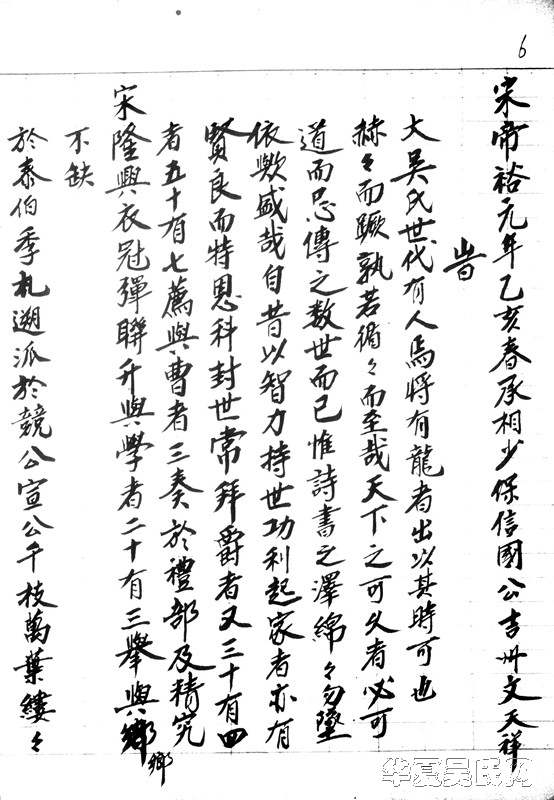 6
宋帝裕元年乙亥春承相少保信國公吉卅文天祥
旹
大吳氏世代有人焉將有龍者出以其時可也
赫々而蹶孰若循々而至哉天下之可久者必可
道而忌傳之数世而已惟詩書之澤綿々勿墜
依歟盛哉自昔以智力持世功利起家者亦有
賢良而特恩科封世常拜爵者又三十有四
者五十有七薦與曹者三奏於禮部及精究
宋隆興衣冠彈聯升與學者二十有三舉與鄉
鄉
不缺
於泰伯季札遡派於競公宣公千枝萬葉縷々
华夏吴氏网